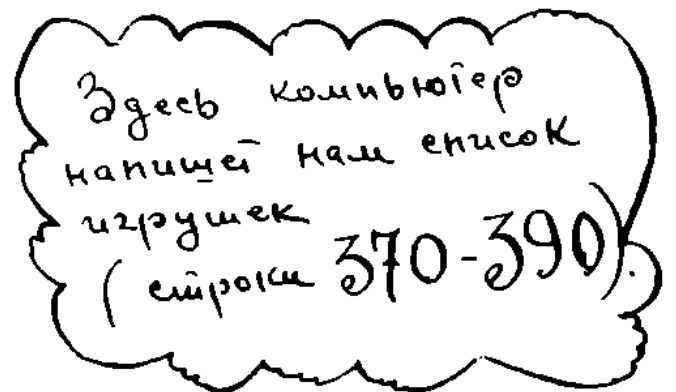 Здесь компьютер
напишет нам список
игрушек
(строки 370-390).